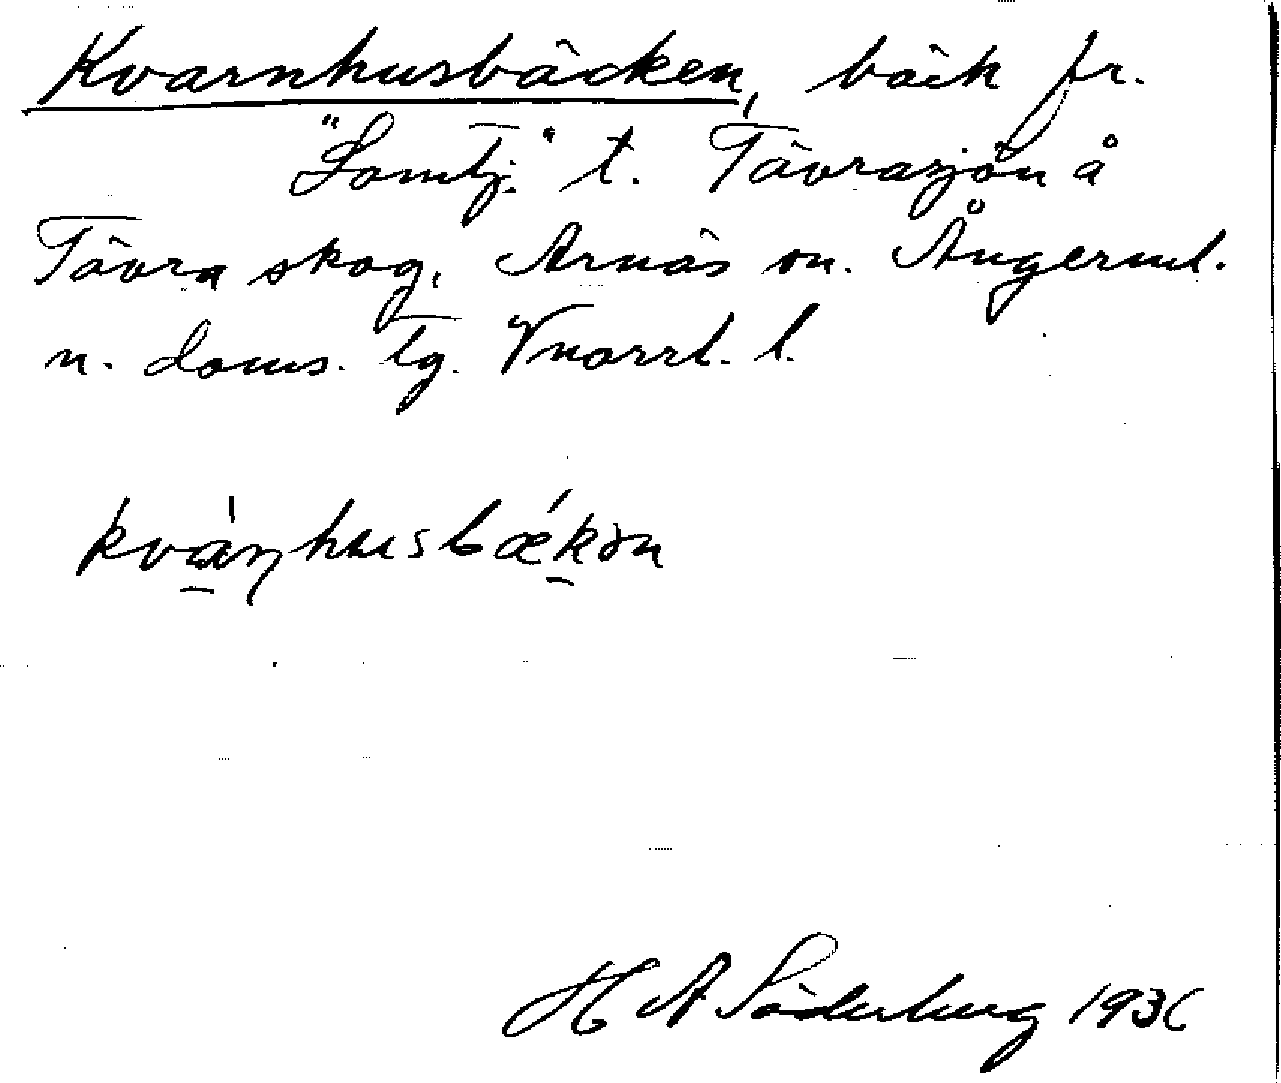 Kvarnhusbäcken, bäck fr.
"Lomtj." t. Tävrasjön å
Tävra skog, Arnäs sn. Ångerml.
n. doms. tg. Vnorrl. l.
kvàɳhusbǽkən
H A Söderberg 1936